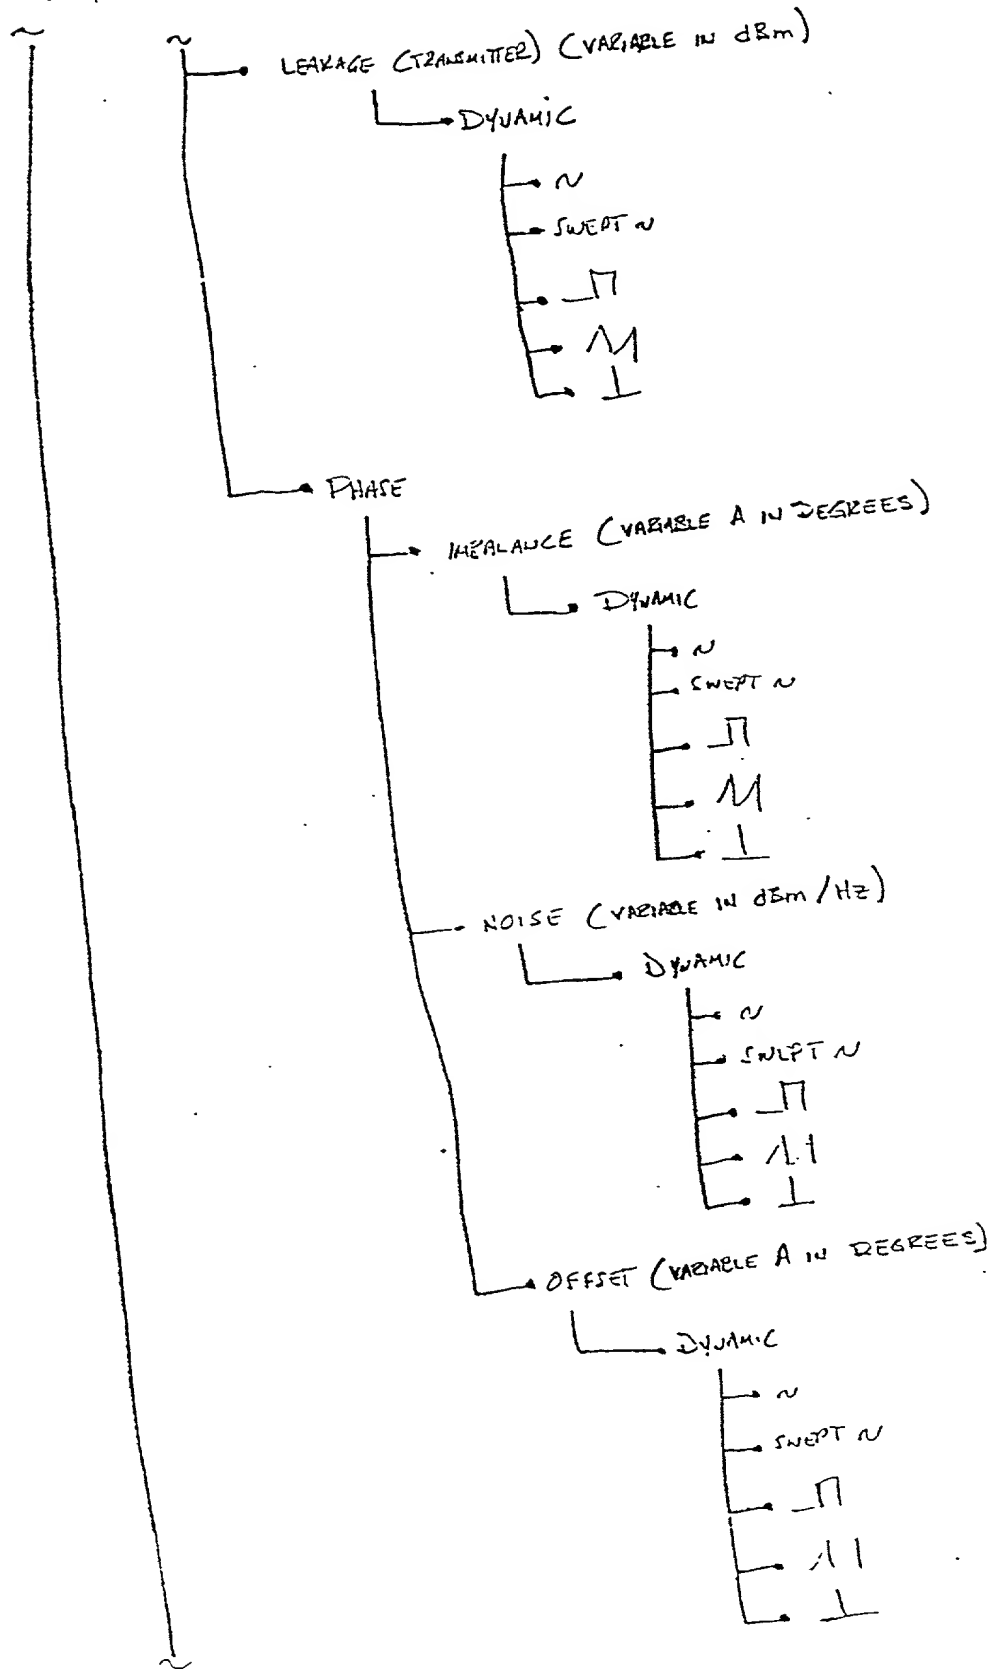 LEAKAGE (TRANSMITTER) (VARIABLE IN dBm)
DYNAMIC
~
SWEPT ~
PHASE
IMBALANCE (VARIABLE Δ IN DEGREES)
DYNAMIC
~
SWEPT ~
NOISE (VARIABLE IN dBm/Hz)
DYNAMIC
~
SWEPT ~
OFFSET (VARIABLE Δ IN DEGREES)
DYNAMIC
~
SWEPT ~